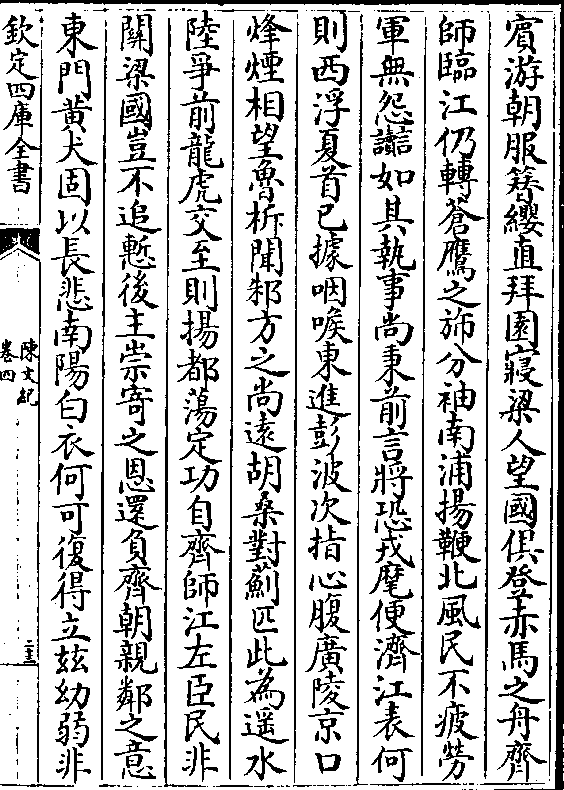 賓游朝服簪纓直拜園寢梁人望國俱登赤馬之舟齊
師臨江仍轉蒼鷹之斾分袖南浦揚鞭北風民不疲勞
軍無怨讟如其執事尚秉前言將恐戎麾便濟江表何
則西浮夏首已據咽喉東進彭波次指心腹廣陵京口
烽煙相望魯柝聞邾方之尚遠胡桑對薊匹此為遥水
陸爭前龍虎交至則揚都蕩定功自齊師江左臣民非
關梁國豈不追慙後主崇寄之恩還負齊朝親鄰之意
東門黄犬固以長悲南陽白衣何可復得立兹幼弱非
欽定四庫全書
陳文紀
卷四
二十三